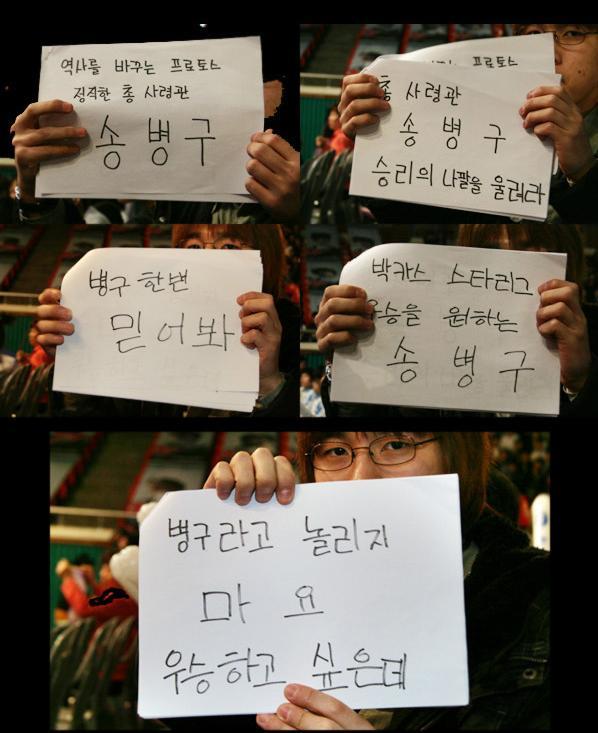 역사를 바꾸는 프로토스
정직한 총 사령관
송병구
프로토스
총 사령관
송병구
승리의 나팔을 울려라
병구 한번
믿어봐
박카스 스타리그
우승을 원하는
송 병 구
병구라고 놀리지
마요
우승하고 싶은데